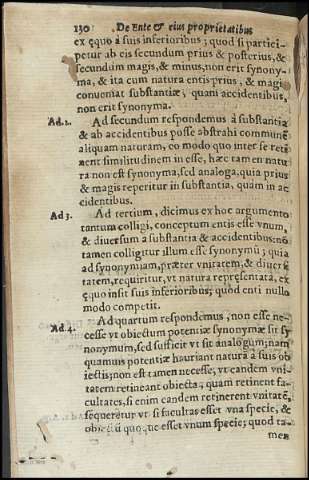 130 De Ente & eius proprietatibus
ex ęquo à suis inferioribus; quod si partici-
petur ab eis secundum prius & posterius, &
secundum magis, & minus, non erit synony-
ma, & ita cum natura entis prius, & magi
conueniat substantiæ, quam accidentibus,
non erit synonyma.
Ad. 2. Ad secundum respondemus à substantia
& ab accidentibus posse abstrahi communē
aliquam naturam, eo modo quo inter se reti-
nent similitudinem in esse, hæc tamen natu
ra non est synonyma, sed analoga, quia prius
& magis reperitur in substantia, quàm in ac
cidentibus.
Ad 3. Ad tertium, dicimus ex hoc argumento
tantum colligi, conceptum entis esse vnum,
& diuersum à substantia & accidentibus: nō
tamen colligitur illum esse synonymū; quia
ad synonymiam, præter vnitatem, & diuersi
tatem, requiritur, vt natura repręsentata, ex
ęquo insit suis inferioribus; quod enti nullo
modo competit.
Ad. 4. Ad quartum respondemus, non esse ne-
cesse vt obiectum potentiæ synonymæ sit sy
nonymum, sed sufficit vt sit analogum; nam
quamuis potentiæ hauriant naturā à suis ob
iectis; non est tamen necesse, vt eandem vni-
tatem retineant obiecta; quam retinent fa-
cultates, si enim eandem retinerent vnitatē,
sequeretur vt si facultas esset vna specie, &
obiectū quoque esset vnum specie; quod ta-
men